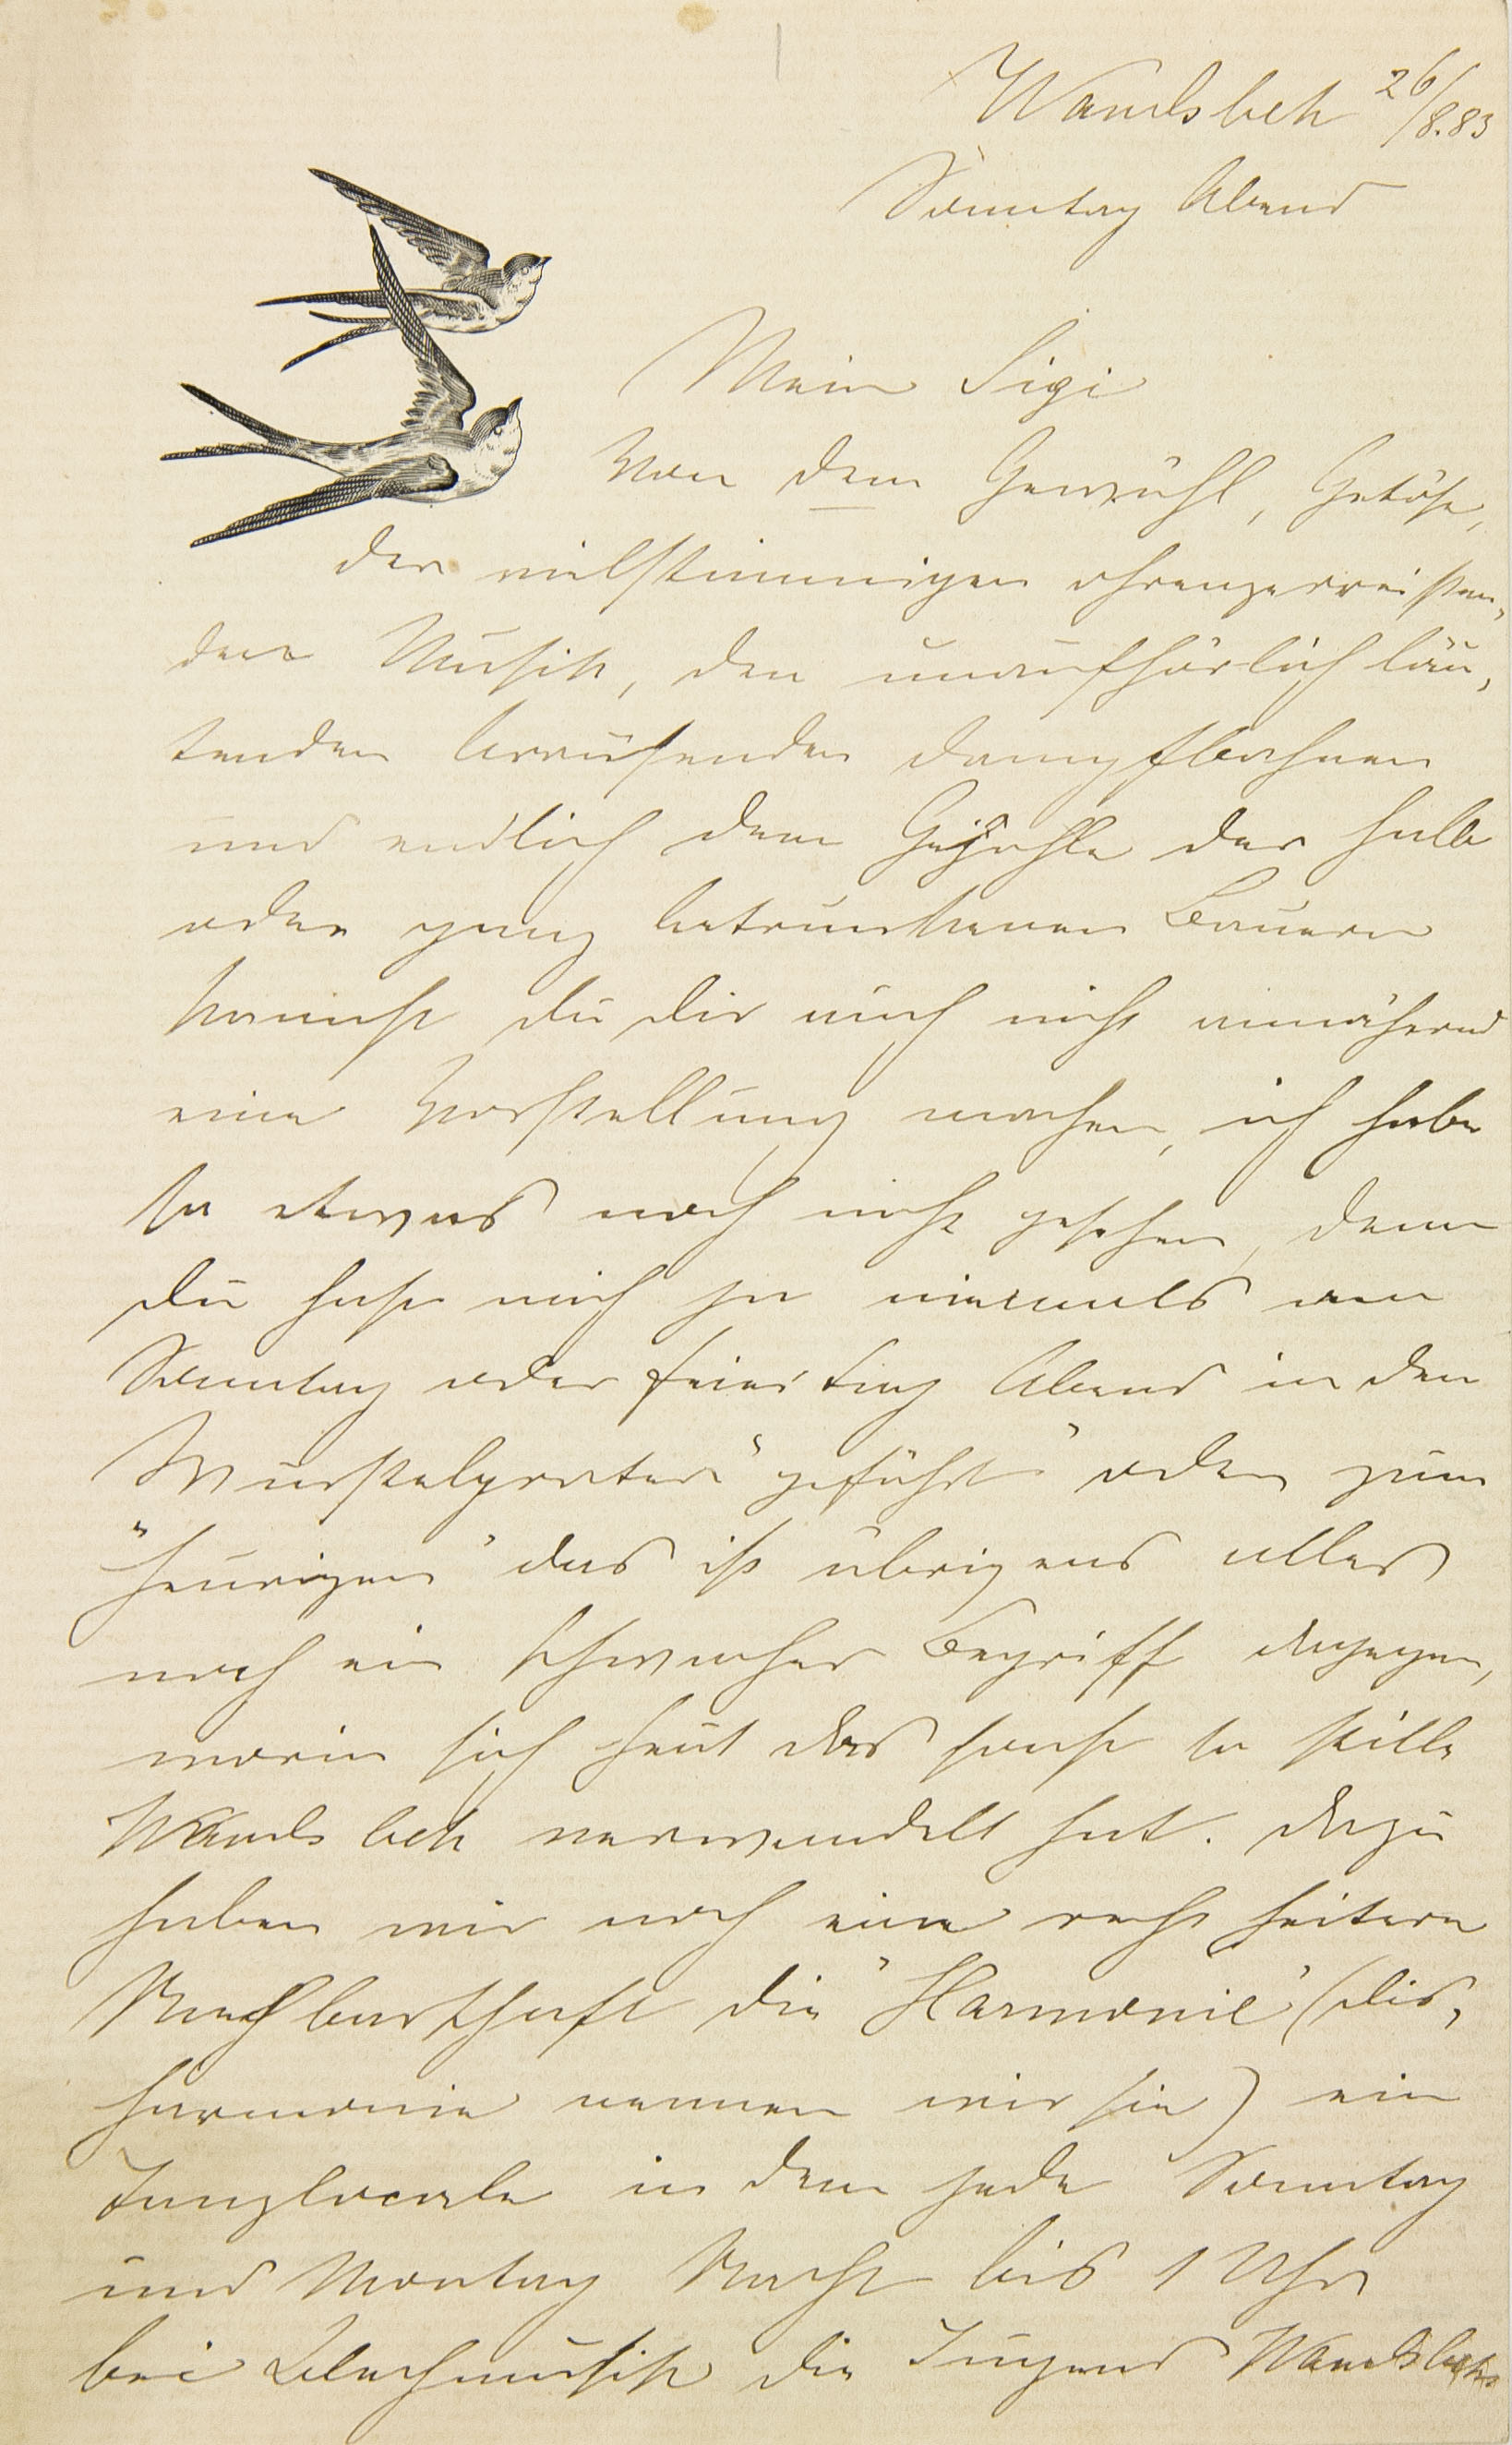 Wandsbek 26/8.83
Sonntag Abend
Mein Sigi
Von dem Gewühl, Getöse,
der vielstimmigen ohrenzerreißen,
den Musik, den unaufhörlich läu,
tenden brausenden Dampfbahnen
und endlich dem Gejohle der halb
oder ganz betrunkenen Bauern
kannst Du Dir auch nicht annähernd
eine Vorstellung machen, ich habe
so etwas noch nicht gesehen, denn
Du hast mich ja niemals am
Sonntag oder Feiertag Abend in den
Wurstelprater "geführt" oder zum
"Heurigen" das ist übrigens alles
noch ein schwacher Begriff dagegen,
worin sich heut das sonst so stille
Wandsbek verwandelt hat. Dazu
haben wir noch eine recht heitere
Nachbarschaft die "Harmonie" (Dis,
harmonie nennen wir sie) ein
Tanzlocale in dem jede Sonntag
und Montag Nacht bis 1 Uhr
bei Blechmusik die Jugend Wandsbeks